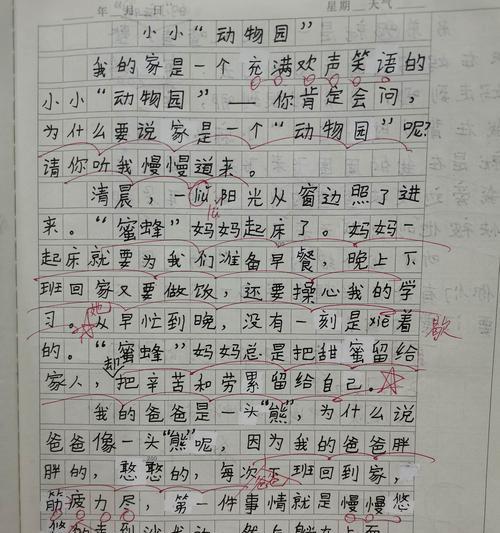 年 月 日 星期 天气
小小“动物园”
我的家是一个充满欢声笑语的
小小“动物园”——你肯定会问，
为什么要说家是一个“动物园”呢?
请你听我慢慢道来。
清晨，一liǔ阳光从窗边照了进
缕
来。“蜜蜂”妈妈起床了。妈妈一
起床就要为我们准备早餐，晚上下
班回家又要做饭，还要操心我的学
习。她从早忙到晚，没有一刻是xiē着
歇
的。“蜜蜂”妈妈总是把甜蜜留给
家人，却把辛苦和劳累留给自己。
我的爸爸是一头“熊”，为什么说
爸爸像一头“熊”呢，因为我的爸爸胖
胖的，憨憨的，每次下班回到家，
爸爸
筋疲力尽，第一件事情就是慢慢悠
悠的走到沙发前，然后躺在上面